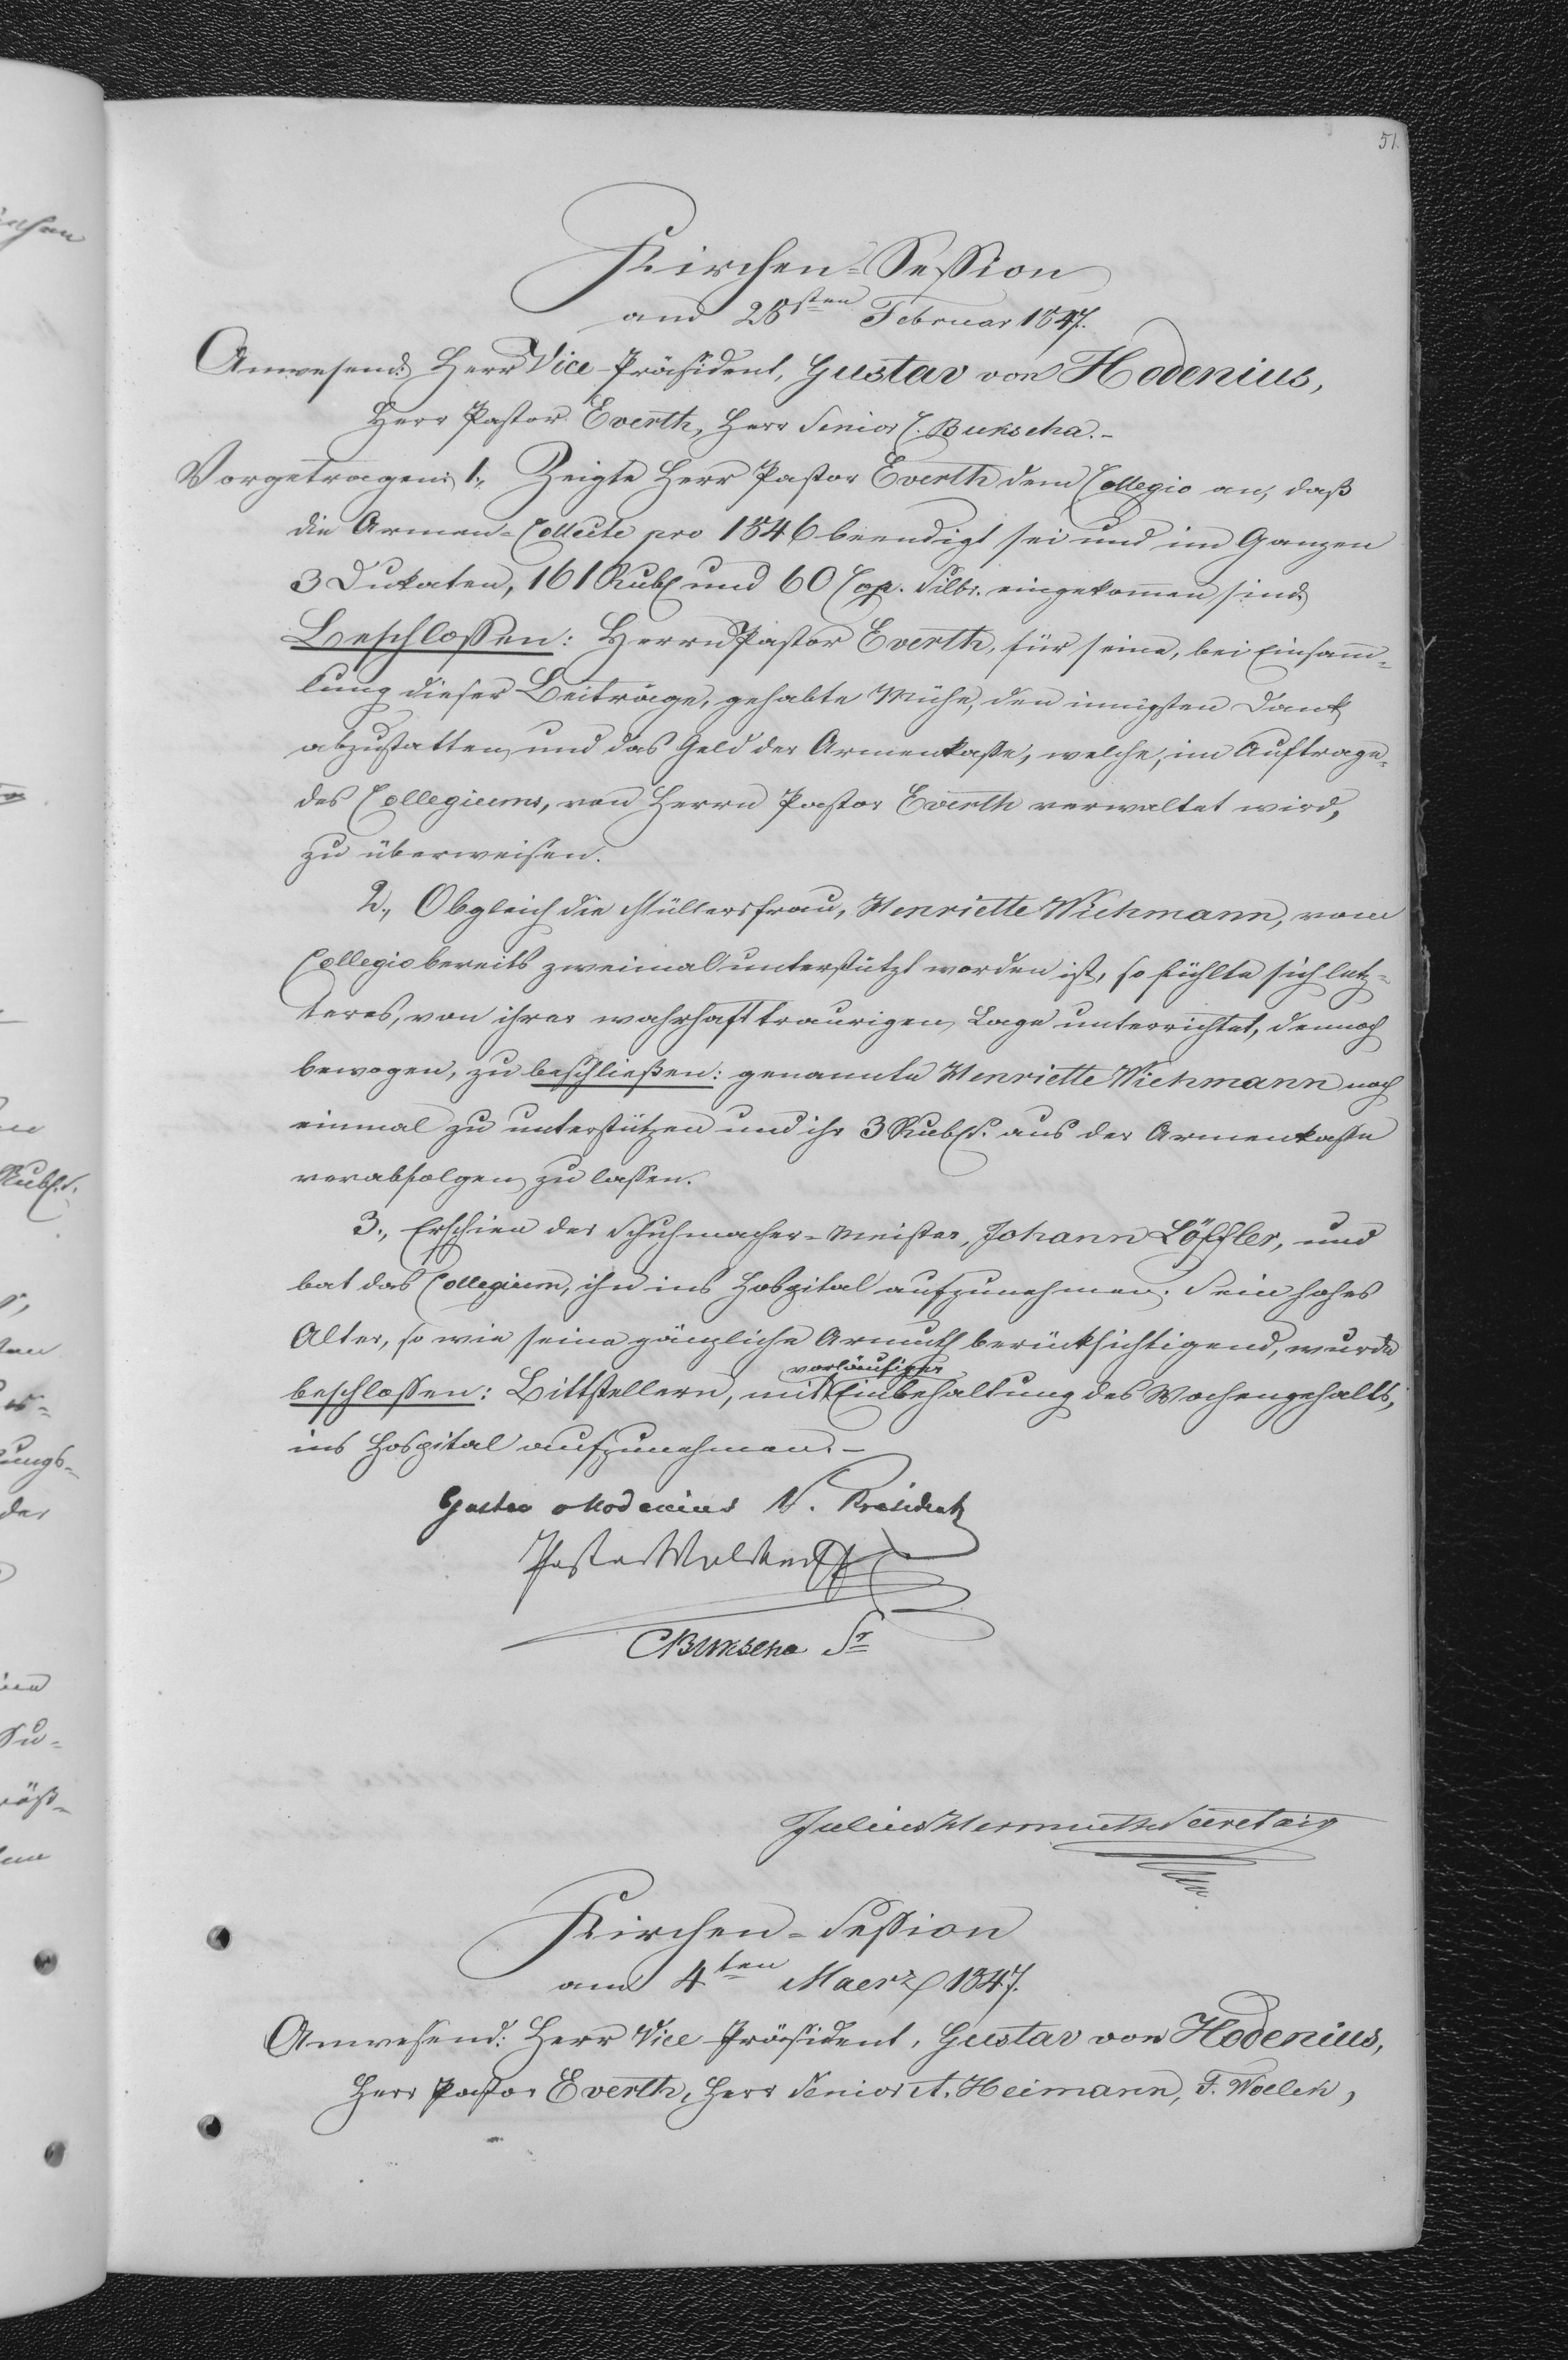 51.
Kirchen-Session
am 28sten Februar 1847.
Anwesend: Herr Vice-Präsident, Gustav von Hodenius,
Herr Pastor Everth, Herr Senior C. Bukscha.-
Vorgetragen: 1., Zeigte Herr Pastor Everth dem Collegio an, daß
die Armen-Collecte pro 1846 beendigt sei und im Ganzen
3 Dukaten, 161 Rubl und 60 Cop. Silbr. eingekomen sind.
Beschlossen: Herrn Pastor Everth, für seine, bei Einsam-
lung dieser Beiträge, gehabte Mühe, den innigsten Dank
abzustatten, und das Geld der Armenkasse, welche, im Auftrage
des Collegiums, von Herrn Pastor Everth verwaltet wird,
zu überweisen.
2., Obgleich die Müllersfrau, Henriette Wichmann, vom
Collegio bereits zweimal unterstützt worden ist, so fühlte sich letz-
teres, von ihrer wahrhaft traurigen Lage unterrichtet, dennoch
bewogen, zu beschließen: genannte Henriette Wichmann noch
einmal zu unterstützen und ihr 3 Rubl S. aus der Armenkasse
verabfolgen zu lassen.
3., Erschien der Schuhmacher-Meister, Johann Löffler, und
bat das Collegium, ihn ins Hospital aufzunehmen. Sein hohes
Alter, so wie seine gänzliche Armuth berücksichtigend, wurde
vorläufiger
beschlossen: Bittstellern, mit Einbehaltung des Wochengehalts,
ins Hospital aufzunehmen.-
Gustav Hodenius V. President
Pastor
CBukscha Sr
Julius Hermuth Secretair
Kirchen-Session
am 4ten Maerz 1847.
Anwesend: Herr Vice-Präsident, Gustav von Hodenius,
Herr Pastor Everth, Herr Senior A. Heimann, F. Woelck,